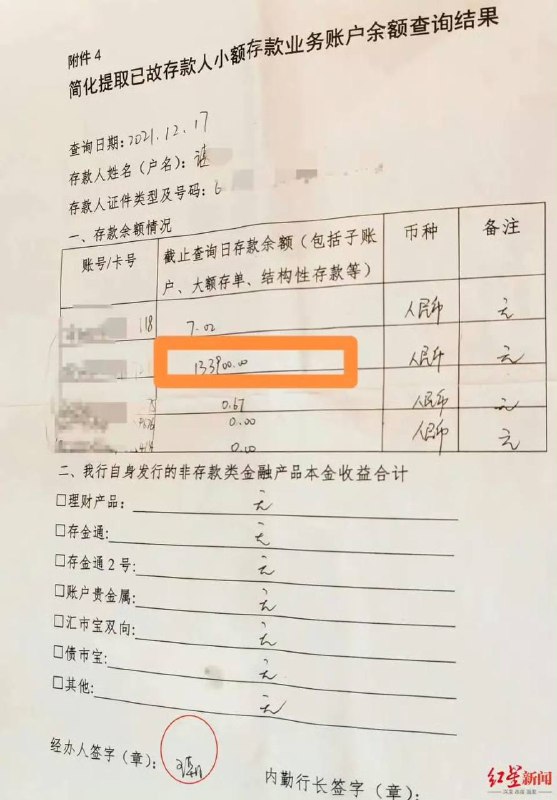 附件4
简化提取已故存款人小额存款业务账户余额查询结果
查询日期：2021.12.17
存款人姓名（户名）：谌
存款人证件类型及号码：6
一、存款余额情况
账号/卡号 截止查询日存款余额（包括子账户、大额存单、结构性存款等） 币种 备注
118 7.02 人民币 元
133900.00 人民币 元
75 0.67 人民币 元
0.00 人民币 元
0.00
二、我行自身发行的非存款类金融产品本金收益合计
□理财产品：元
□存金通：元
□存金通2号：元
□账户贵金属：元
□汇市宝双向：元
□债市宝：元
□其他：元
经办人签字（章）：
内勤行长签字（章）：
红星新闻